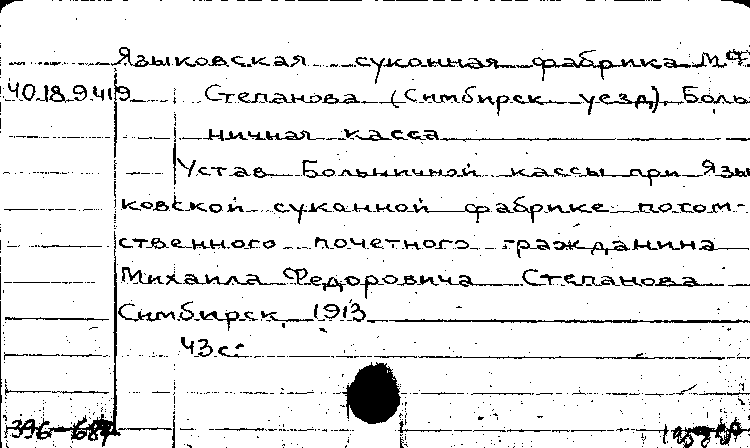 Языковская суконная фабрика М.Ф.
40.18.9419 Степанова (Симбирск. уезд). Боль-
ничная касса
Устав Больничной кассы при Язы-
ковской суконной фабрике потом-
ственного почетного гражданина
Михаила Федоровича Степанова
Симбирск, 1913
43с.
396-687